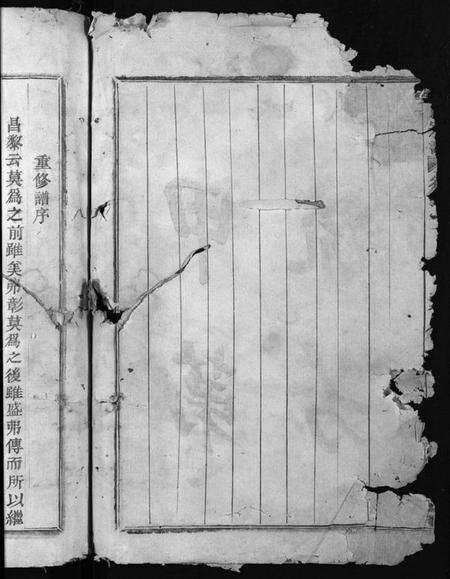 重修譜序
昌黎云莫為之前雖美弗彰莫為之後雖盛弗傳而所以繼